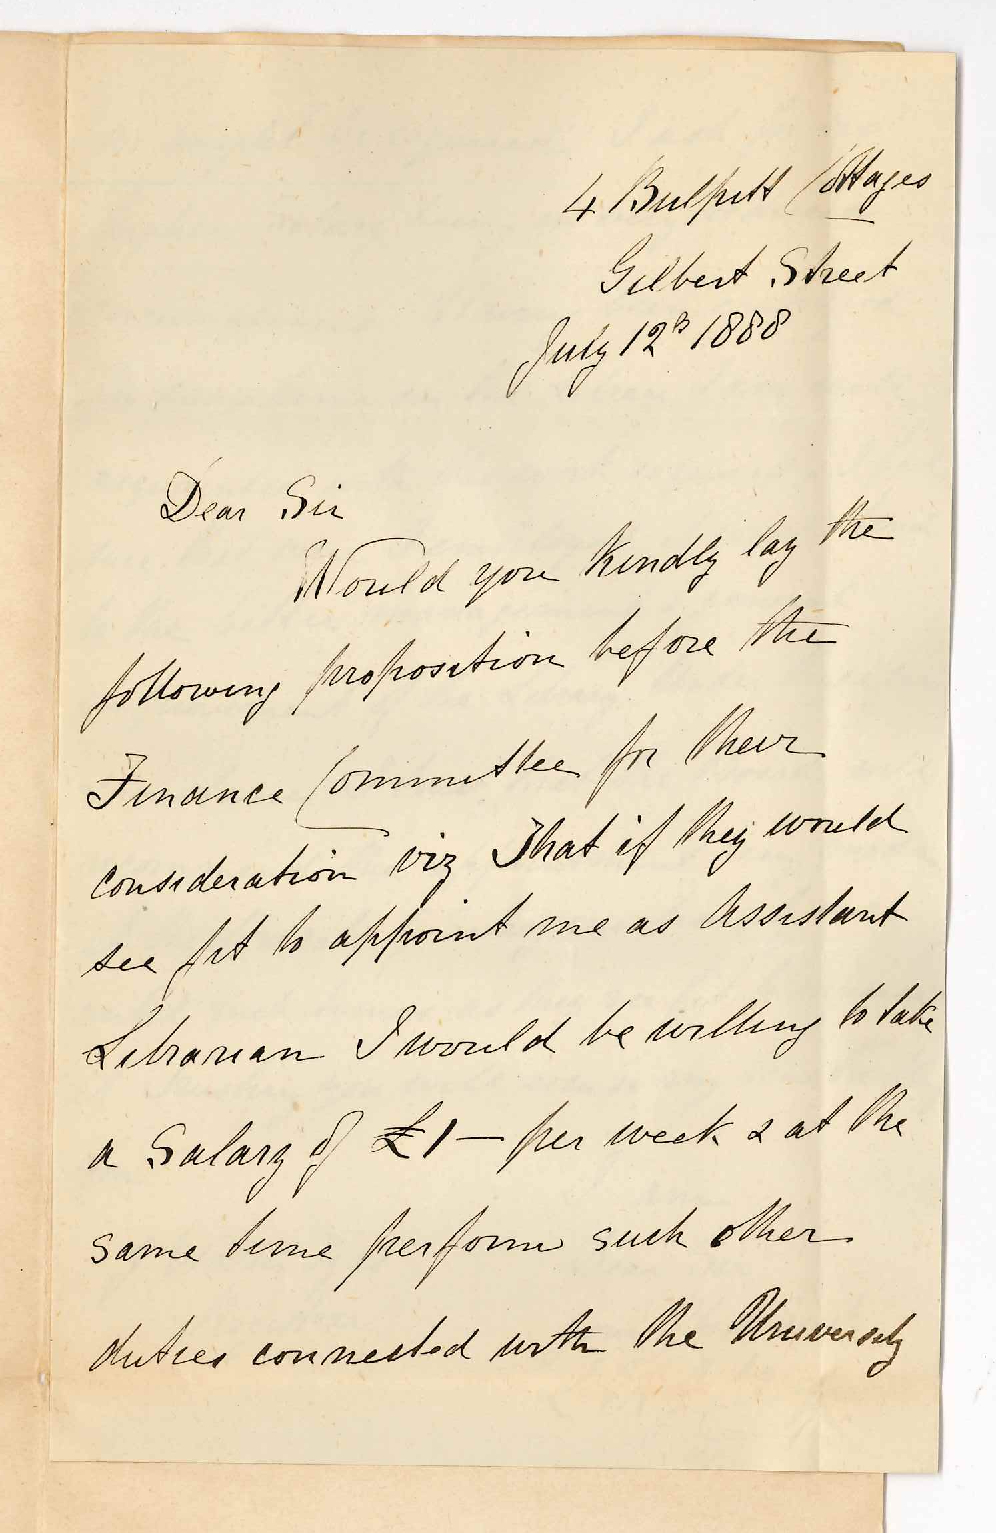 4 Bulpitt Cottages
Gilbert Street
July 12th 1888
Dear Sir
Would you kindly lay the
following proposition before the
Finance Committee for their
consideration viz That if they would
see fit to appoint me as Assistant
Librarian I would be willing to take
a Salary of £1 — per week & at the
same time perform such other
duties connected with the University